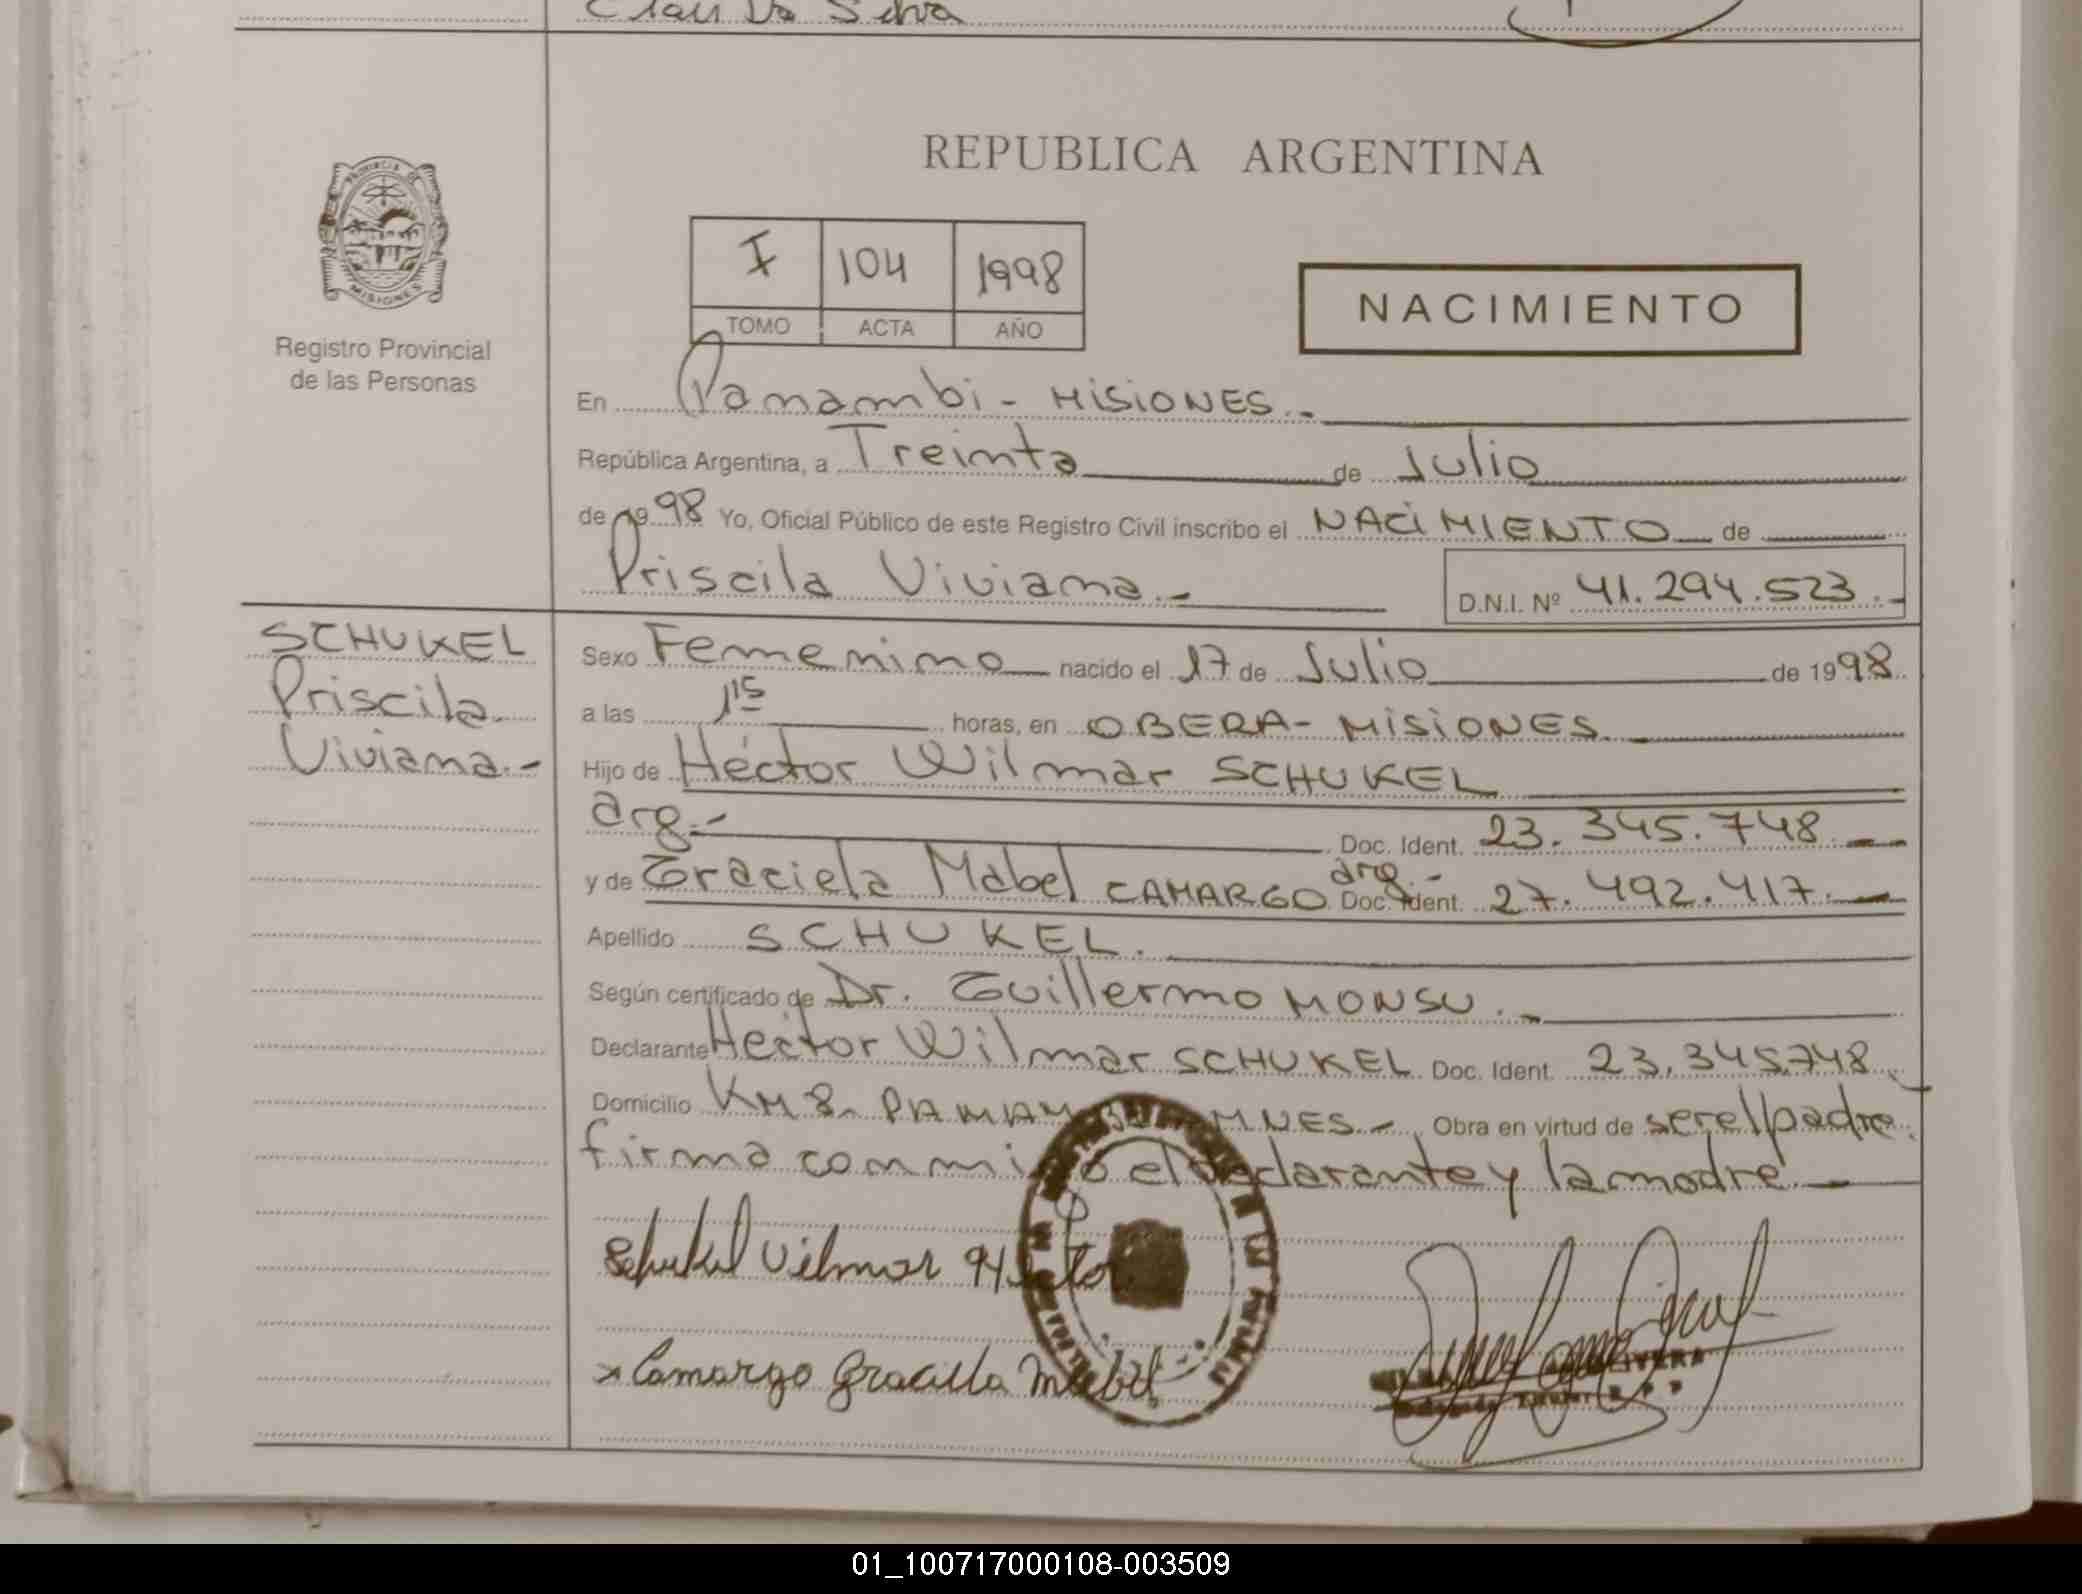 Clau Da Silva
REPUBLICA ARGENTINA
PROVINCIA DE
MISIONES
Registro Provincial
de las Personas
I 104 1998
TOMO ACTA AÑO
NACIMIENTO
En Panambi - MISIONES.-
República Argentina, a Treinta de Julio
de 1998 Yo, Oficial Público de este Registro Civil inscribo el NACIMIENTO de
Priscila Viviana.-
D.N.I. Nº 41.294.523.-
SCHUKEL
Priscila
Viviana.-
Sexo Femenino nacido el 17 de Julio de 1998
a las 1 15 horas, en OBERA - MISIONES.
Hijo de Héctor Wilmar SCHUKEL
arg.- Doc. Ident. 23.345.748.-
y de Graciela Mabel CAMARGO arg.- Doc. Ident. 27.492.417.-
Apellido SCHUKEL.
Según certificado de Dr. Guillermo MONSU.-
Declarante Héctor Wilmar SCHUKEL Doc. Ident. 23.345.748.
Domicilio KM 8- PANAMBI MNES.- Obra en virtud de ser el padre.
firma conmigo el declarante y la madre.-
Schukel Vilmar Hector
x Camargo Graciela Mabel
01_100717000108-003509